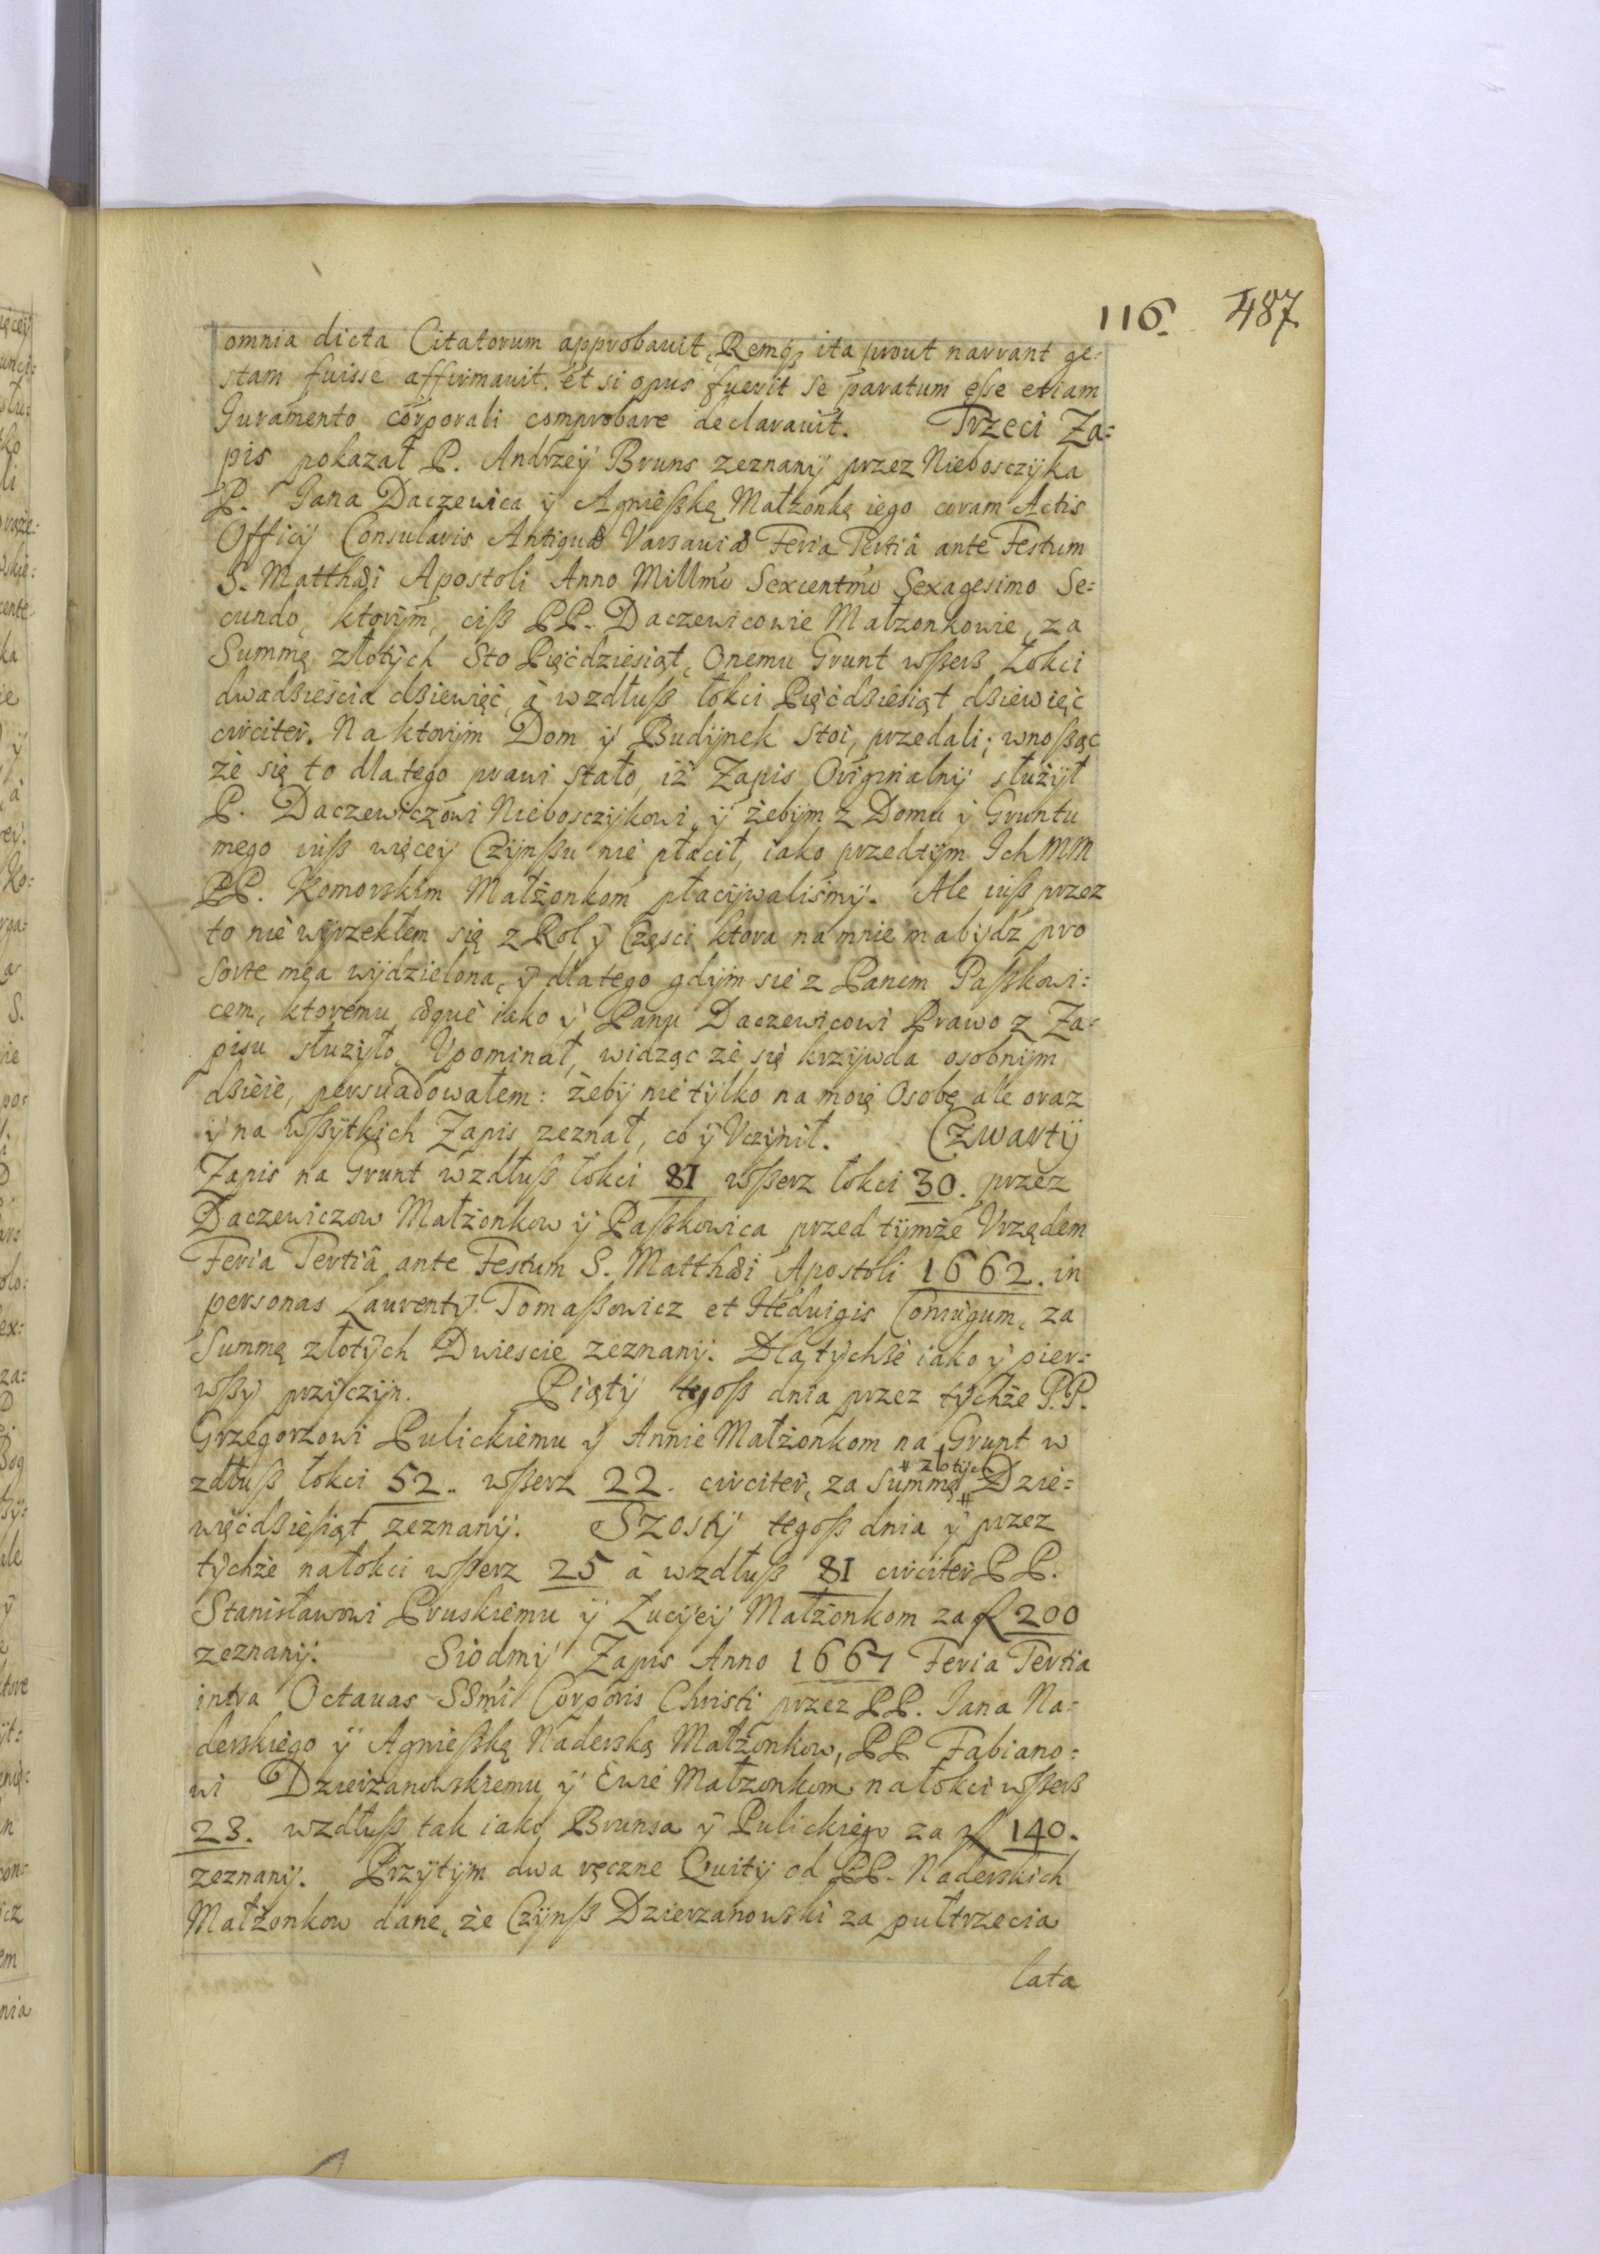 116. 487
omnia dicta Citatorum approbauit, Remq; ita prout narrant ge=
stam fuisse affirmauit. et si opus fuerit se paratum esse etiam
Iuramento corporali comprobare declarauit. Trzeci Za=
pis pokazał P. Andrzeÿ Bruns zeznanÿ przez Niebosczÿka
P. Jana Daczewica ÿ Agnießkę Małżonkę iego coram Actis
Officÿ Consularis Antiquæ Varsauiæ Feria Tertiâ ante Festum
S. Matthæi Apostoli Anno Millm̃o Sexcentm̃o Sexagesimo Se=
cundo, ktorÿm, ciß PP. Daczewicowie Małzonkowie, za
Summę złotÿch Sto Pięćdziesiąt, Onemu Grunt wßerß Łokci
dwadzieścia dziewięć, à wzdłuß łokci Pięćdziesiąt dziewięć
circiter. Na ktorÿm Dom ÿ Budÿnek stoi, przedali; wnoßąc
że się to dlatego prawi stało, iż Zapis Originalnÿ służÿł
P. Daczewiczowi Niebosczÿkowi, ÿ żebÿm z Domu ÿ Gruntu
mego iuß więceÿ Czÿnßu nie płacił, iako przedtÿm Ich MM
PP. Komorskim Małżonkom płacÿwaliśmÿ. Ale iuß przez
to nie wÿrzekłem się z Rolÿ Częsci ktora na mnie ma bÿdź pro
sorte mea wÿdzielona, ÿ dlatego gdÿm sie z Panem Paßkowi=
cem, ktoremu æque iako ÿ Panu Daczewicowi Prawo z Za=
pisu słuzÿło, Vpominał, widząc że się krzÿwda osobnÿm
dzieie, persuadowałem: żebÿ nie tÿlko na moię Osobę ale oraz
ÿ na wßÿtkich Zapis zeznał, co ÿ Vczÿnił. Czwartÿ
Zapis na Grunt wzdłuß łokci 81 wßerz łokci 30. przez
Daczewiczow Małżonkow ÿ Paßkowica przed tÿmże Vrzędem
Feria Tertiâ ante Festum S. Matthæi Apostoli 1662. in
personas Laurentÿ Tomaßowicz et Heduigis Coniugum, za
Summę złotÿch Dwiescie zeznanÿ. Dla tÿchże iako ÿ pier=
wßÿ przÿczÿn. Piątÿ tegoß dnia przez tÿchże P.P.
Grzegorzowi Pulickiemu ÿ Annie Małżonkom na Grunt w
zdłuß łokci 52. wßerz 22. circiter, za Summę # złotÿch # Dzie=
więćdzießiąt zeznanÿ. Szostÿ tegoß dnia ÿ przez
tÿchże na łokci wßerz 25 à wzdłuß 81 circiter PP.
Stanisławowi Pruskiemu ÿ Łucÿeÿ Małżonkom za fl 200
zeznanÿ. Siodmÿ Zapis Anno 1667 Feria Tertia
intra Octauas SSmi Corporis Christi przez PP. Iana Na=
derskiego ÿ Agnießkę Naderską Małżonkow, PP Fabiano=
wi Dzierżanowskiemu ÿ Ewie Małzonkom na łokci wßerß
28. wzdłuß tak iako Brunsa ÿ Pulickiego za fl 140.
zeznanÿ. Przÿtÿm dwa ręczne Quitÿ od PP. Naderskich
Małżonkow dane, że Czÿnß Dzierzanowski za pułtrzecia
lata